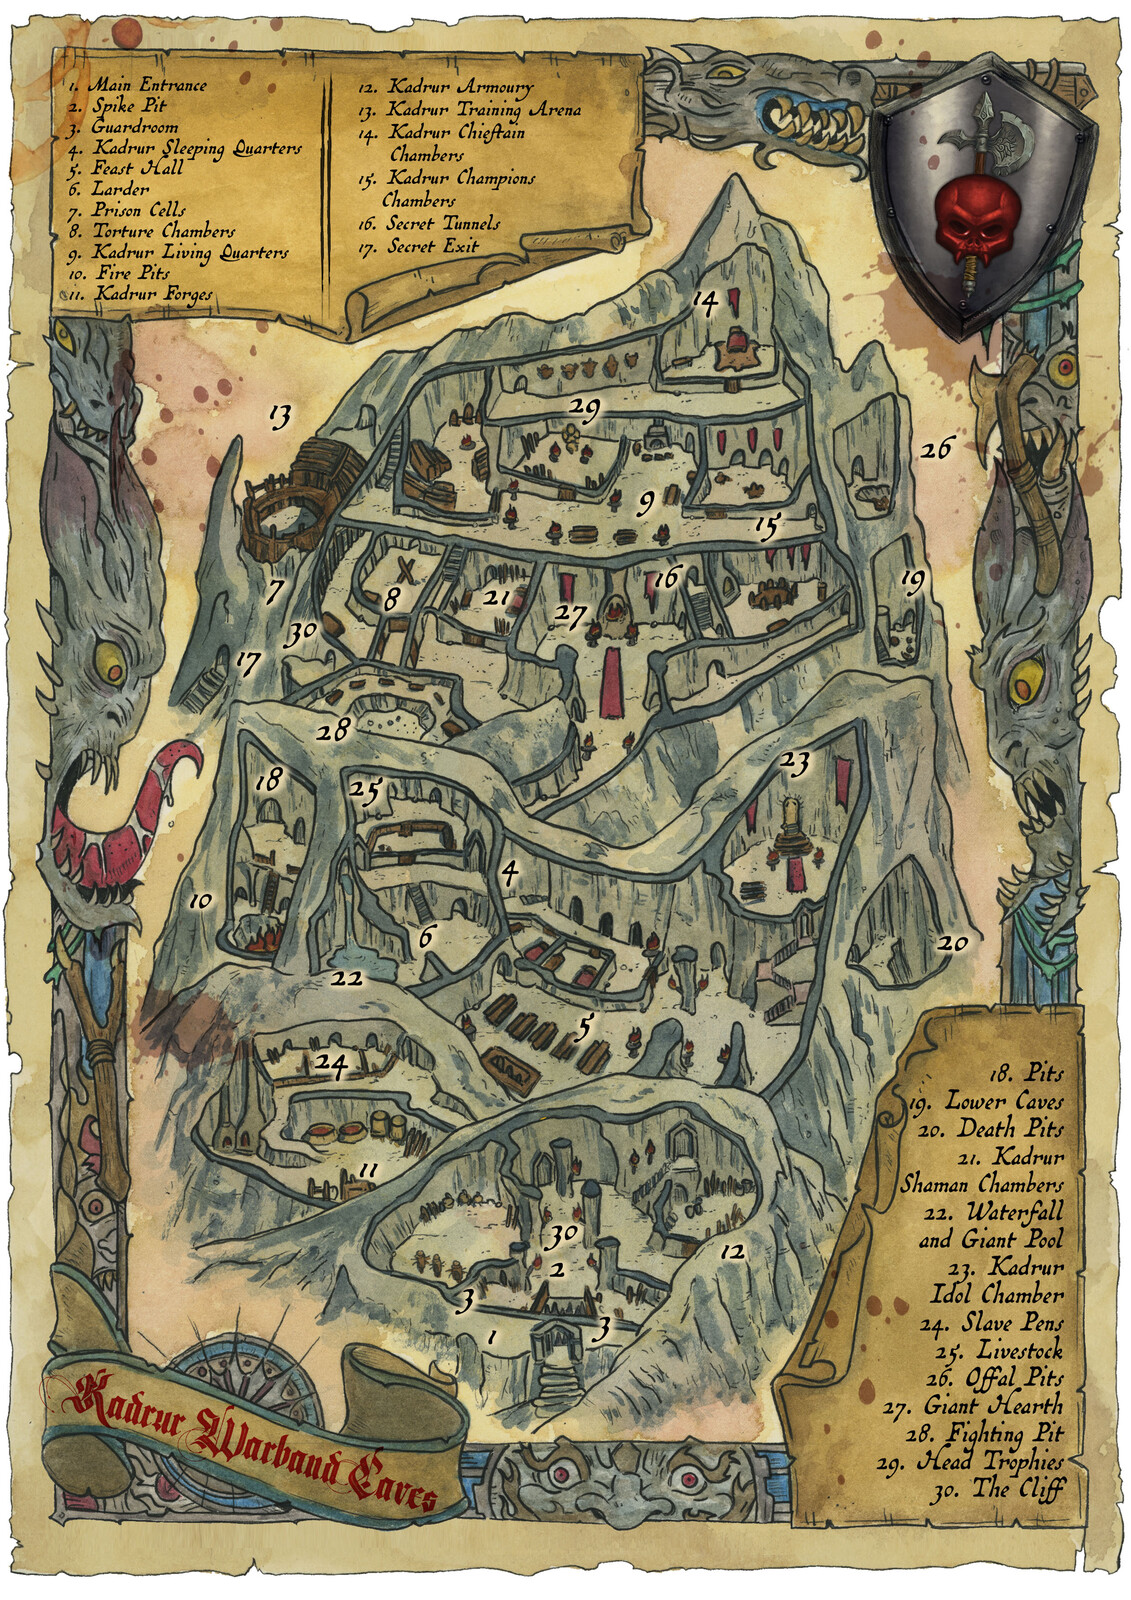 1. Main Entrance
2. Spike Pit
3. Guardroom
4. Kadrur Sleeping Quarters
5. Feast Hall
6. Larder
7. Prison Cells
8. Torture Chambers
9. Kadrur Living Quarters
10. Fire Pits
11. Kadrur Forges
12. Kadrur Armoury
13. Kadrur Training Arena
14. Kadrur Chieftain
Chambers
15. Kadrur Champions
Chambers
16. Secret Tunnels
17. Secret Exit
14
13
29
26
9
15
16
19
7
8
21
27
30
17
28
23
18
25
4
10
6
20
22
5
24
11
30
12
2
3
3
1
18. Pits
19. Lower Caves
20. Death Pits
21. Kadrur
Shaman Chambers
22. Waterfall
and Giant Pool
23. Kadrur
Idol Chamber
24. Slave Pens
25. Livestock
26. Offal Pits
27. Giant Hearth
28. Fighting Pit
29. Head Trophies
30. The Cliff
Kadrur Warband Caves